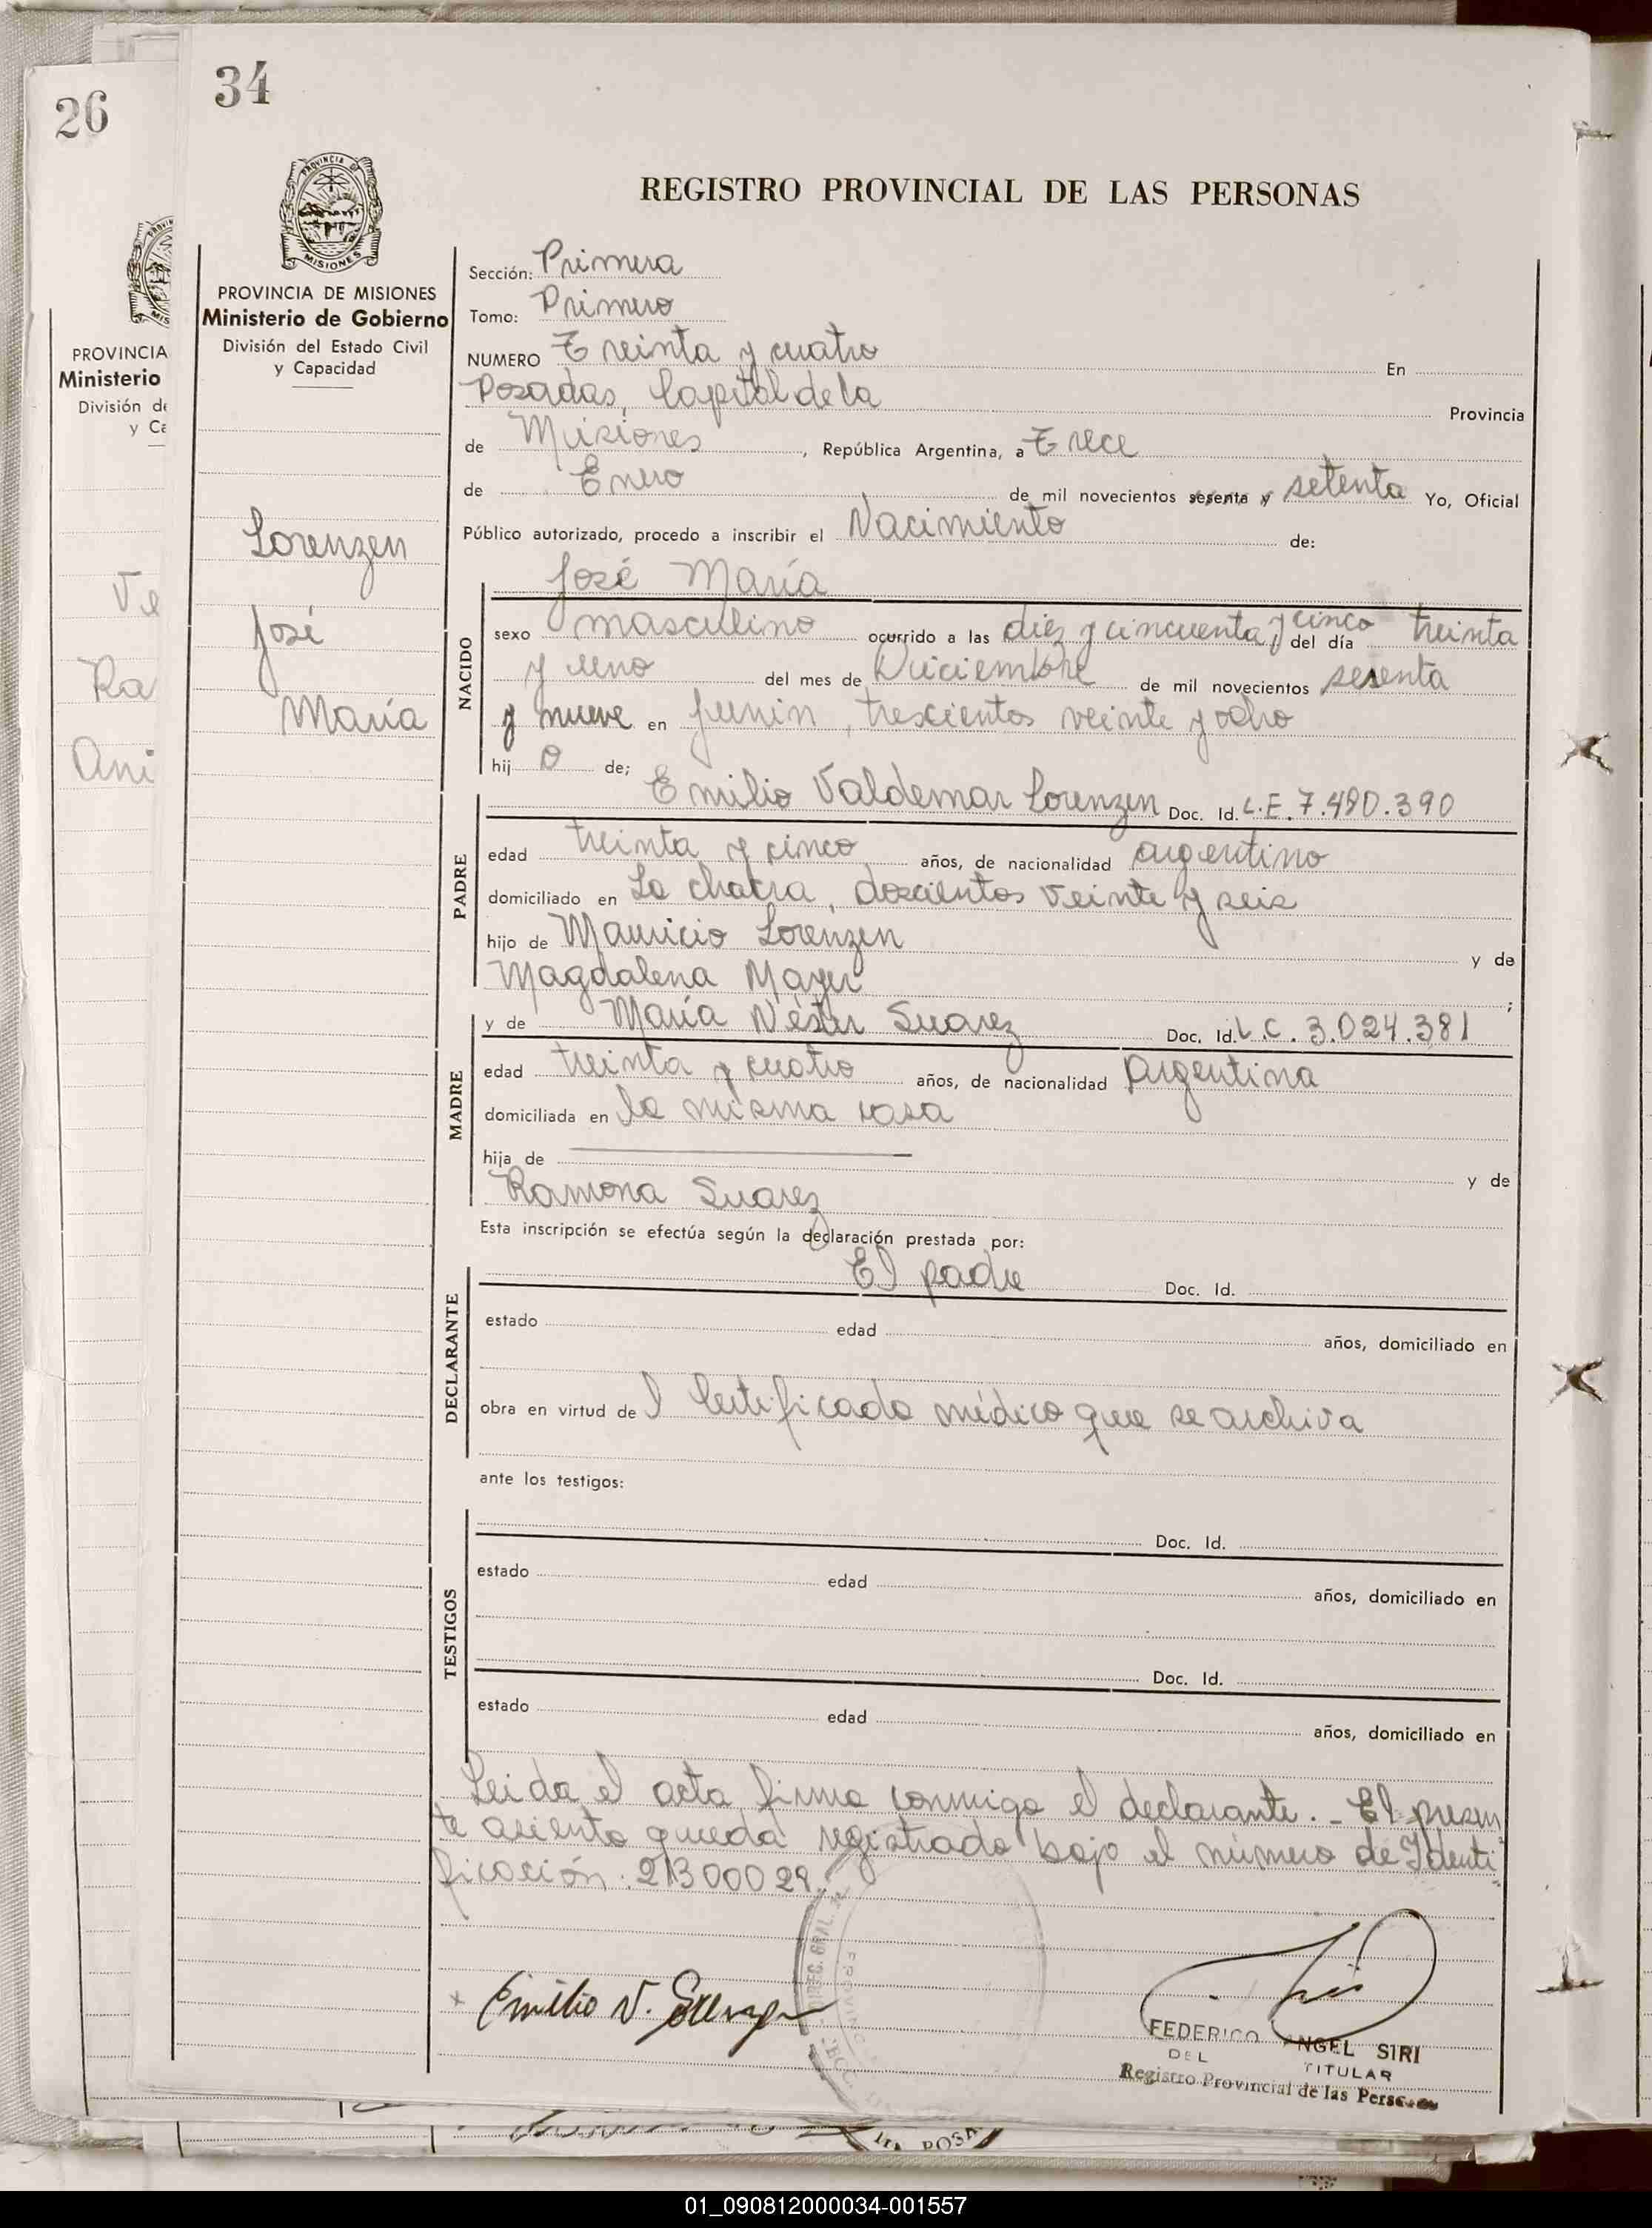 26
34
PROVINCIA DE MISIONES
MISIONES
PROVINCIA
Ministerio
División de
y Ca
Ve
Ra
Ani
PROVINCIA DE MISIONES
Ministerio de Gobierno
División del Estado Civil
y Capacidad
Lorenzen
José
María
REGISTRO PROVINCIAL DE LAS PERSONAS
Sección: Primera
Tomo: Primero
NUMERO Treinta y cuatro En
Posadas, Capital de la Provincia
de Misiones, República Argentina, a Trece
de Enero de mil novecientos sesenta y setenta Yo, Oficial
Público autorizado, procedo a inscribir el Nacimiento de:
NACIDO
José María
sexo masculino ocurrido a las diez y cincuenta y cinco del día treinta
y uno del mes de Diciembre de mil novecientos sesenta
y nueve en Junin, trescientos veinte y ocho
hij o de;
PADRE
Emilio Valdemar Lorenzen Doc. Id. L.E. 7.490.390
edad treinta y cinco años, de nacionalidad argentino
domiciliado en La chacra, doscientos veinte y seis
hijo de Mauricio Lorenzen y de
Magdalena Mayer ;
MADRE
y de María Néster Suarez Doc. Id. L.C. 3.024.381
edad treinta y cuatro años, de nacionalidad Argentina
domiciliada en la misma casa
hija de y de
Ramona Suarez
Esta inscripción se efectúa según la declaración prestada por:
DECLARANTE
El padre Doc. Id.
estado edad años, domiciliado en
obra en virtud de l Certificado médico que se archiva
ante los testigos:
TESTIGOS
Doc. Id.
estado edad años, domiciliado en
Doc. Id.
estado edad años, domiciliado en
Leida el acta firma conmigo el declarante._ El presen
te asiento queda registrado bajo el número de Identi
ficación. 21300028.
Emilio V. Lorenzen
FEDERICO ANGEL SIRI
DEL TITULAR
Registro Provincial de las Personas
01_090812000034-001557